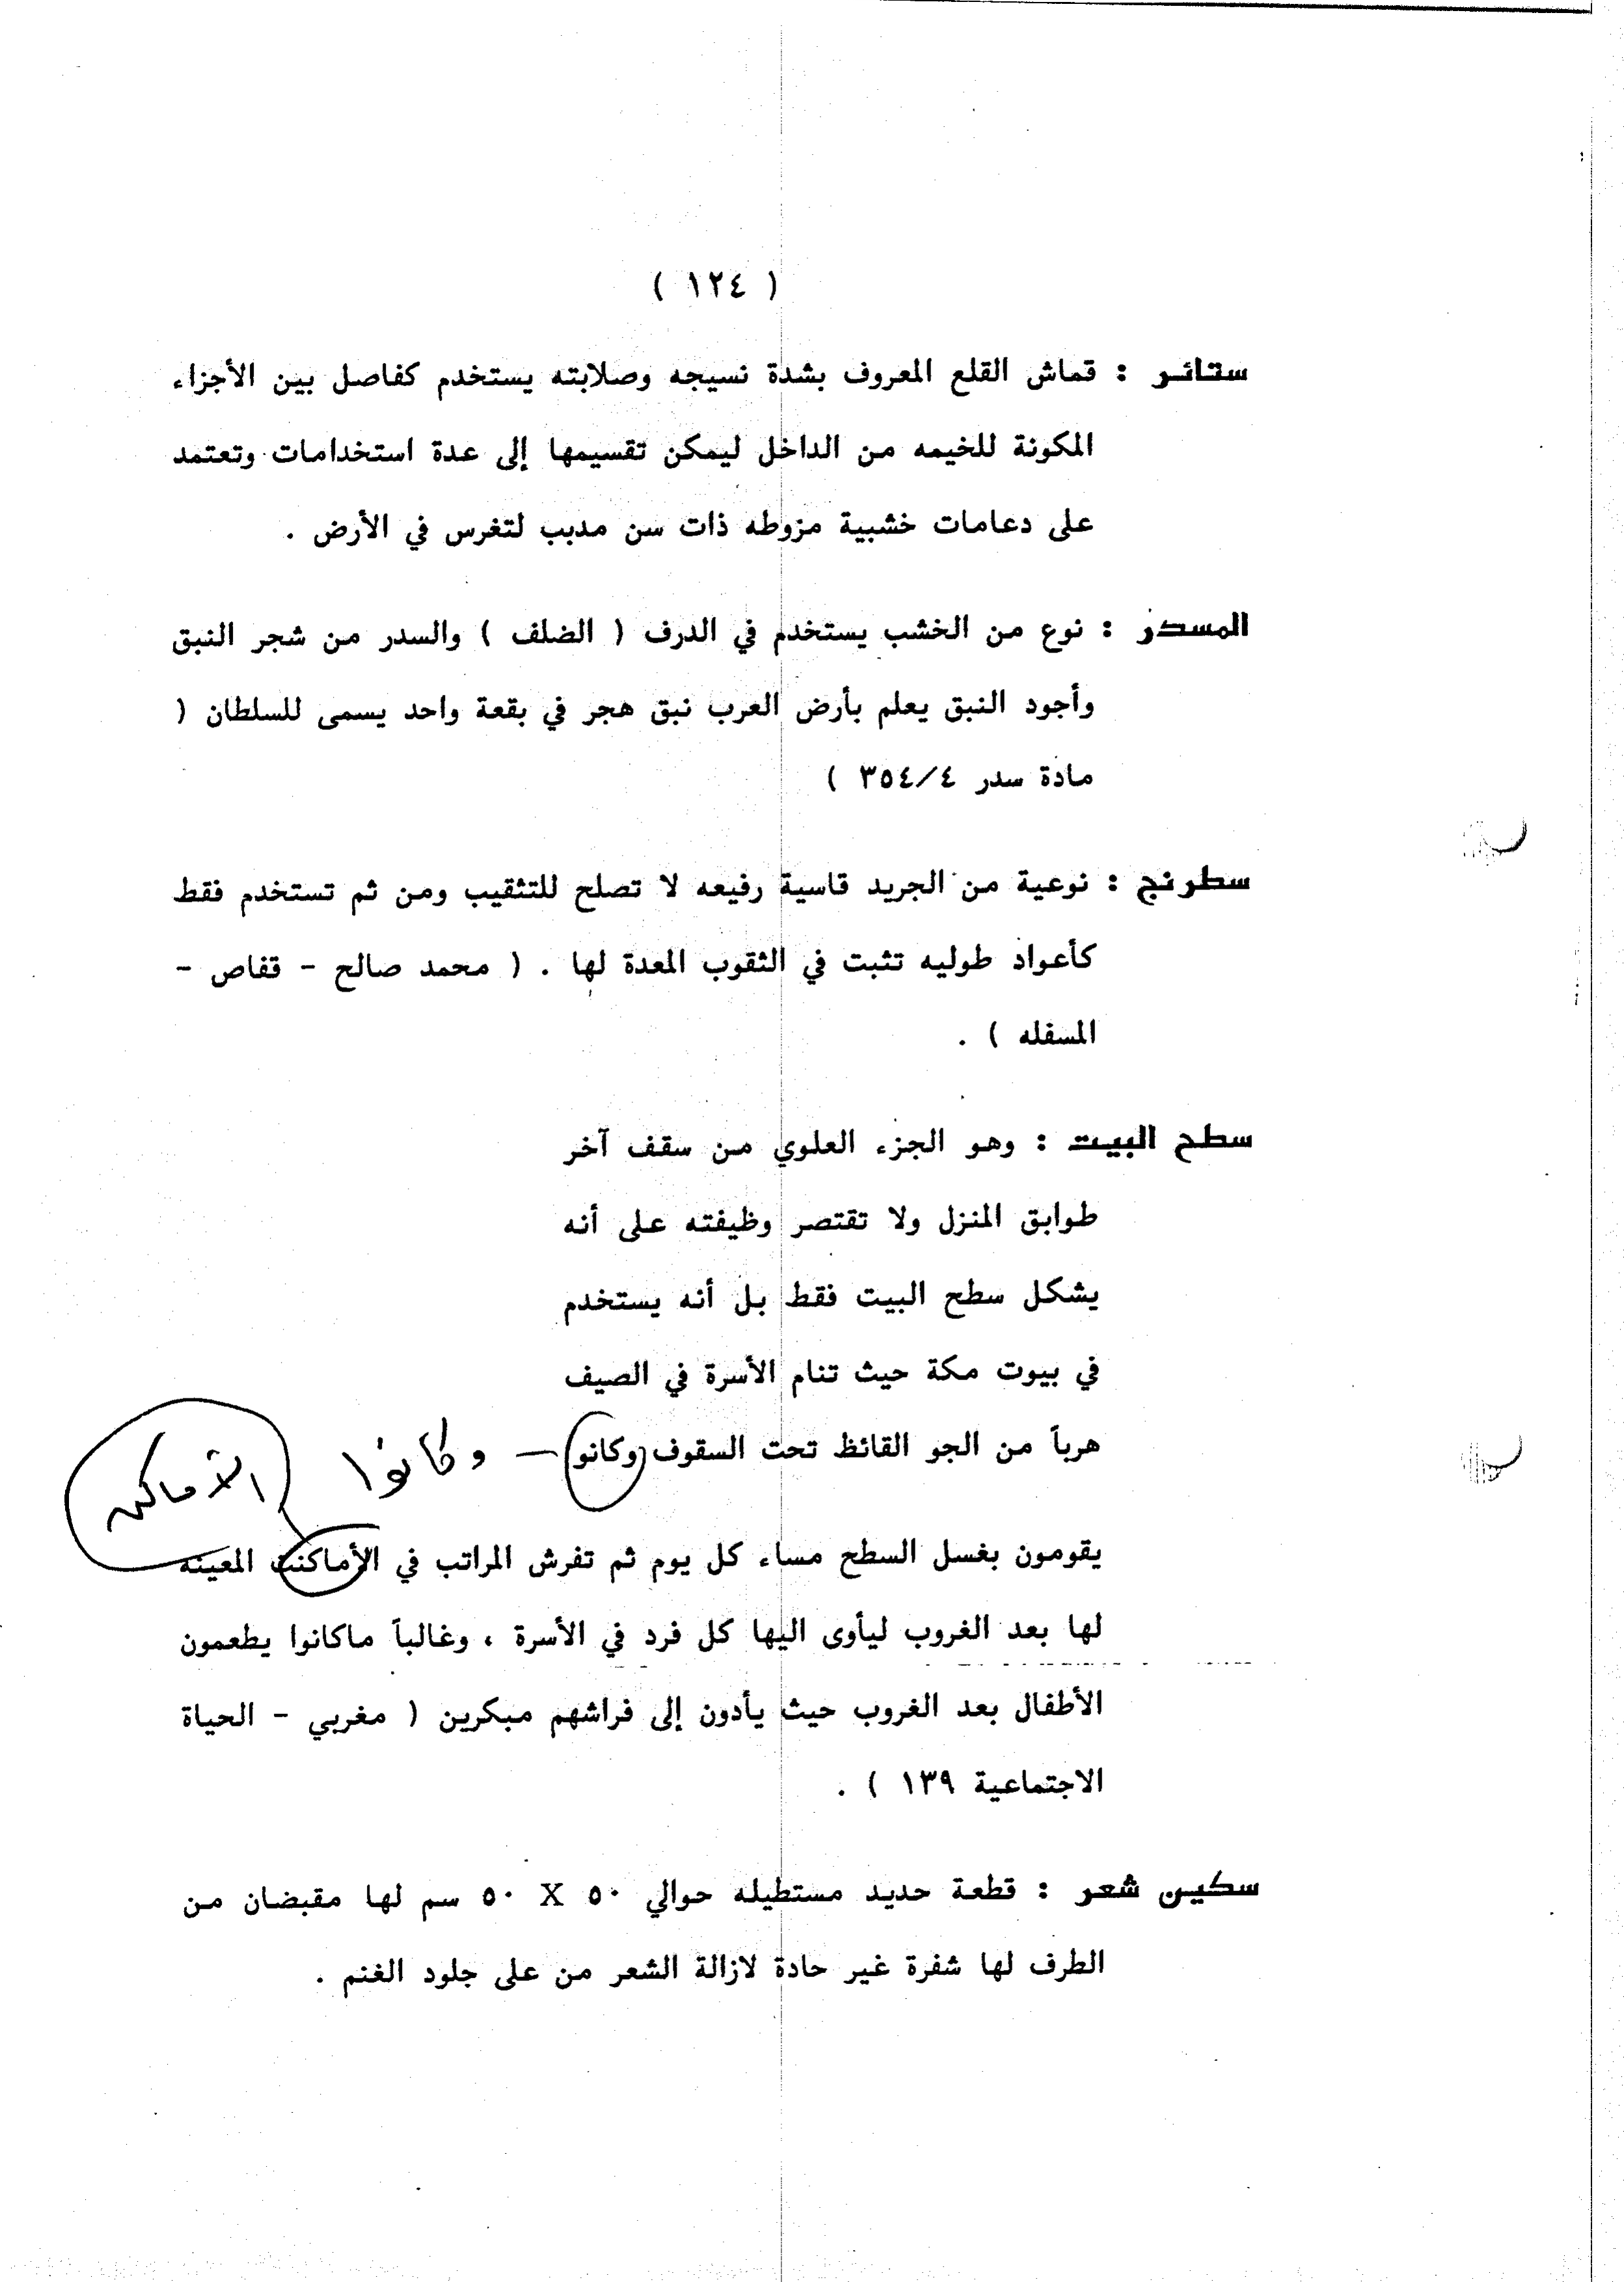 ( ١٢٤ )
ستائر : قماش القلع المعروف بشدة نسيجه وصلابته يستخدم كفاصل بين الأجزاء
المكونة للخيمه من الداخل ليمكن تقسيمها إلى عدة استخدامات وتعتمد
على دعامات خشبية مزوطه ذات سن مدبب لتغرس في الأرض .
المسدر : نوع من الخشب يستخدم في الدرف ( الضلف ) والسدر من شجر النبق
وأجود النبق يعلم بأرض العرب نبق هجر في بقعة واحد يسمى للسلطان (
مادة سدر ٣٥٤/٤ )
سطرنج : نوعية من الجريد قاسية رفيعه لا تصلح للتثقيب ومن ثم تستخدم فقط
كأعواد طوليه تثبت في الثقوب المعدة لها . ( محمد صالح - قفاص -
المسفله ) .
سطح البيت : وهو الجزء العلوي من سقف آخر
طوابق المنزل ولا تقتصر وظيفته على أنه
يشكل سطح البيت فقط بل أنه يستخدم
في بيوت مكة حيث تنام الأسرة في الصيف
هرباً من الجو القائظ تحت السقوف وكانو — وكانوا
الأماكن
يقومون بغسل السطح مساء كل يوم ثم تفرش المراتب في الأماكنت المعينه
لها بعد الغروب ليأوى اليها كل فرد في الأسرة ، وغالباً ماكانوا يطعمون
الأطفال بعد الغروب حيث يأدون إلى فراشهم مبكرين ( مغربي - الحياة
الاجتماعية ١٣٩ ) .
سكين شعر : قطعة حديد مستطيله حوالي ٥٠ X ٥٠ سم لها مقبضان من
الطرف لها شفرة غير حادة لازالة الشعر من على جلود الغنم .